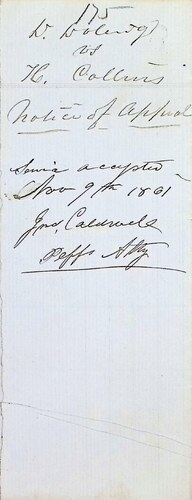 175
D.
vs
H. Collins
Notice of Appeal
Service accepted
Nov 9th 1861
Jno. Caldwell
Deffs Atty